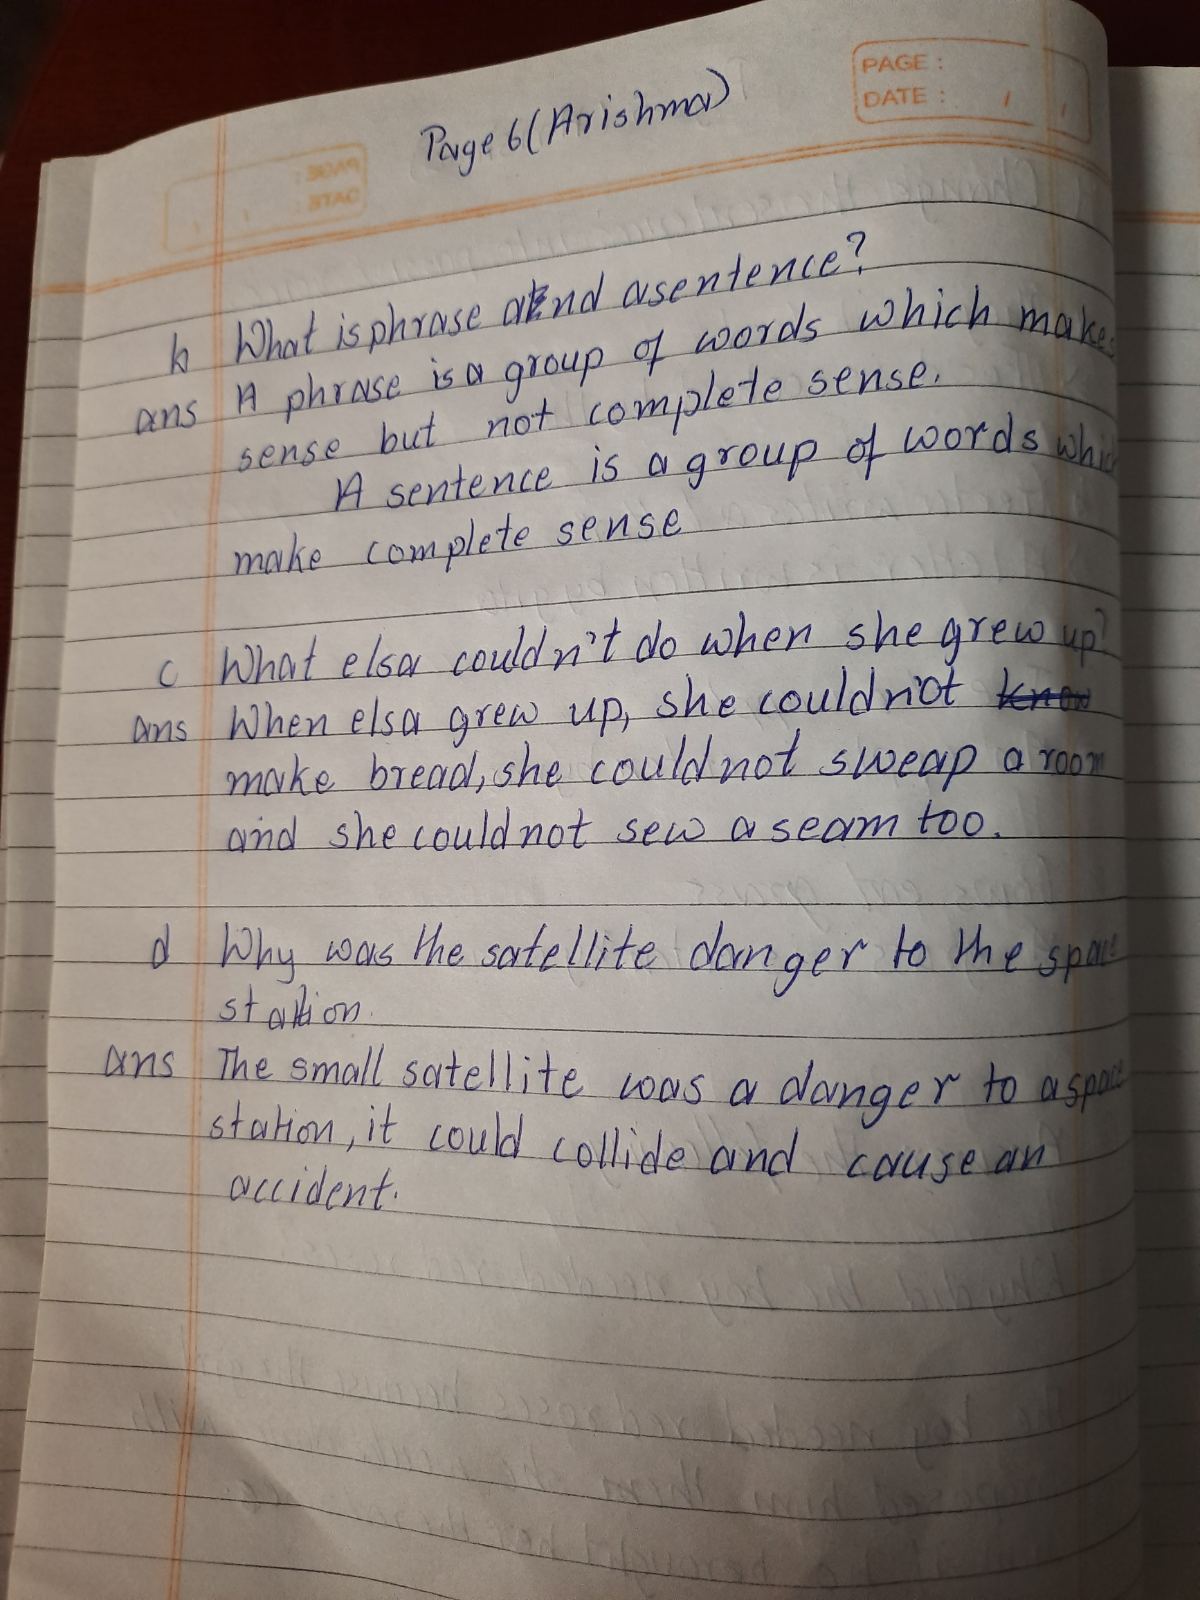 PAGE :
DATE : / /
Page 6 (Arishma)
b What is phrase and a sentence?
ans A phrase is a group of words which makes
sense but not complete sense.
A sentence is a group of words which
make complete sense
c What elsa couldn't do when she grew up?
ans When elsa grew up, she could not know
make bread, she could not sweap a room
and she could not sew a seam too.
d Why was the satellite danger to the space
station.
ans The small satellite was a danger to a space
station, it could collide and cause an
accident.